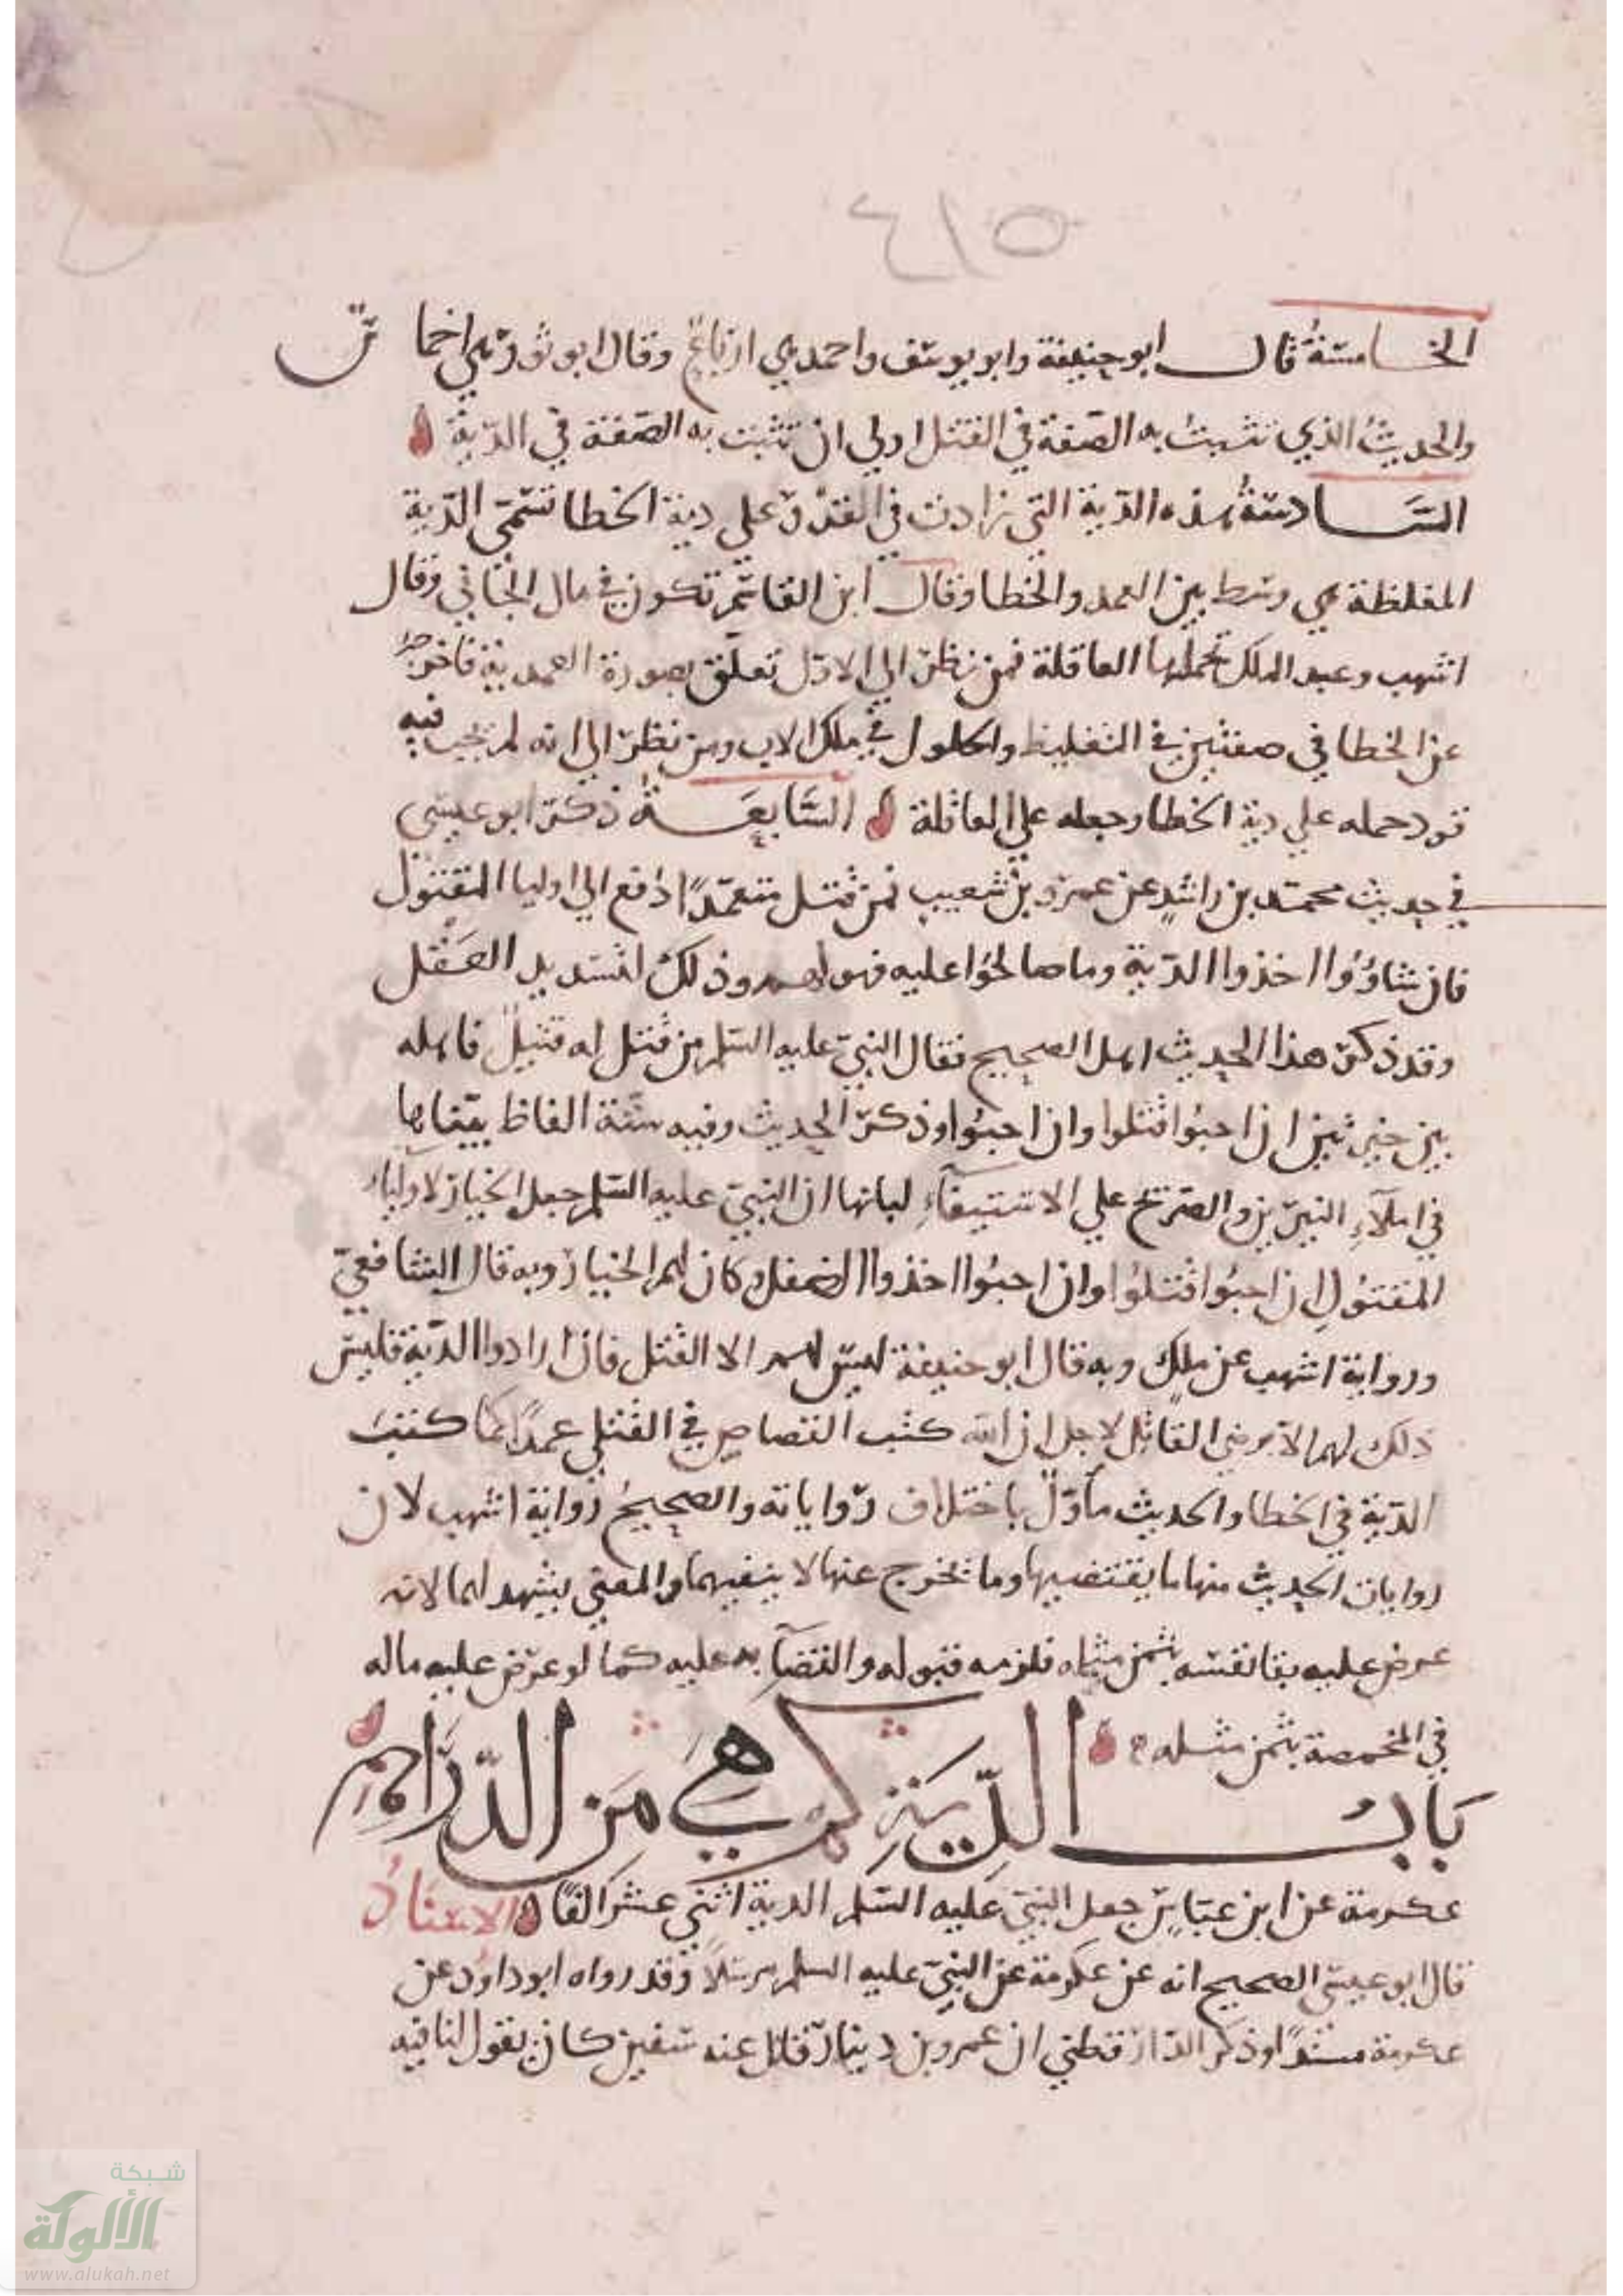 ٤١٥
الخامسة قال ابو حنيفة وابو يوسف واحمد هي ارباع وقال ابو ثور هي اخماس
والحديث الذي تثبت به الصفة في القتل اولي ان تثبت به الصفة في الدية
السادسة هذه الدية التي زادت في القدر علي دية الخطا تسمي الدية
المغلظة هي وسط بين العمد والخطا وقال ابن القاسم تكون في مال الجاني وقال
اشهب وعبد الملك تحملها العاقلة فمن نظر الي الاول تعلق بصورة العمدية فاخرجه
عن الخطا في صفتين في التغليظ والحلول في ملك الاب ومن نظر الي انه لم يجب فيه
قود حمله علي دية الخطا وجعله علي العاقلة السابعة ذكر ابو عيسي
في حديث محمد بن راشد عن عمرو بن شعيب فمن قتل متعمدًا دفع الي اوليا المقتول
فان شاؤوا اخذوا الدية وما صالحوا عليه فهو لهم وذلك لتشديد العقل
وقد ذكر هذا الحديث اهل الصحيح فقال النبي عليه السلم من قتل له قتيل فاهله
بين خيرتين ان احبوا قتلوا وان احبوا وذكر الحديث وفيه ستة الفاظ بيناها
في املآء النيرين والصريح علي الاستيفآء لبابها ان النبي عليه السلم جعل الخيار لاولياء
المقتول ان احبوا قتلوا وان احبوا اخذوا العقل وكان لهم الخيار وبه قال الشافعي
ورواية اشهب عن ملك وبه قال ابو حنيفة ليس لهم الا القتل فان ارادوا الدية فليس
ذلك لهم الا برضي القاتل لاجل ان الله كتب القصاص في القتلي عمدًا كما كتبت
الدية في الخطا والحديث مأول باختلاف رواياته والصحيح رواية اشهب لان
روايات الحديث منها ما يقتضيها وما تخرج عنها لا ينفيها والمعني يشهد لها لانه
عرض عليه بقا نفسه بثمن مثله فلزمه قبوله والقضآ به عليه كما لو عرض عليه ماله
في المخمصة بثمن مثله
بَابُ الدِّيَةِ كَم هِيَ مِنَ الدَّرَاهِمِ
عكرمة عن ابن عباس جعل النبي عليه السلم الدية اثني عشر الفًا الاسناد
قال ابو عيسي الصحيح انه عن عكرمة عن النبي عليه السلم مرسلًا وقد رواه ابو داود عن
عكرمة مسندًا وذكر الدارقطني ان عمرو بن دينار قال عنه سفين كان يقول لنا فيه
شبكة
الألوكة
www.alukah.net